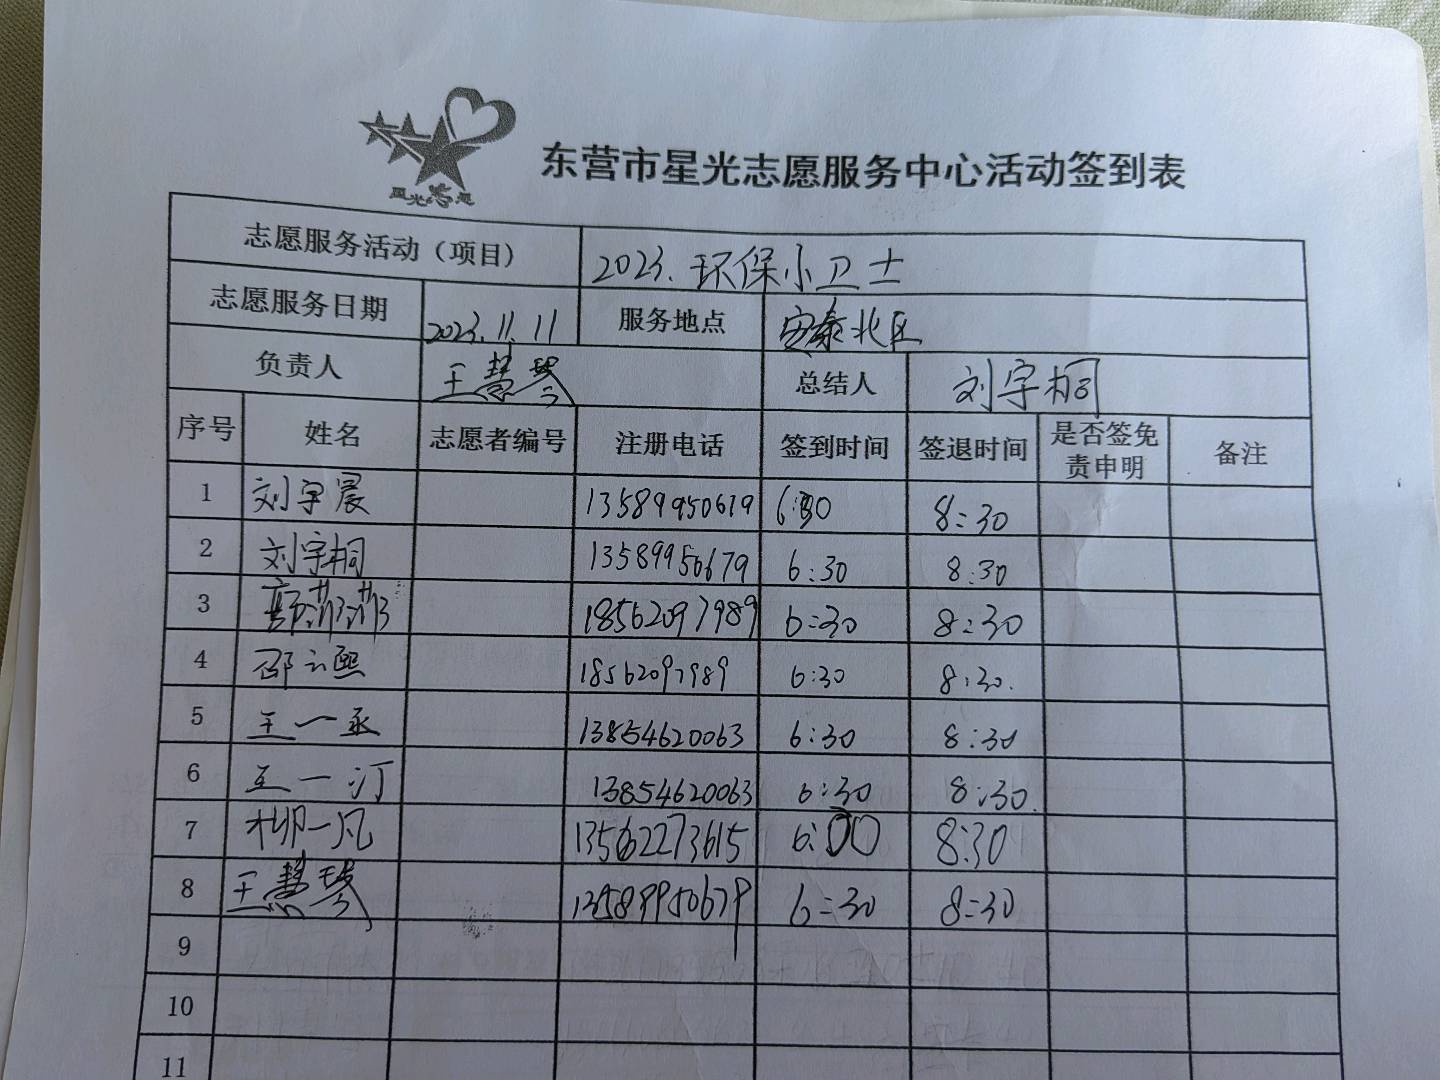 星光志愿
东营市星光志愿服务中心活动签到表
志愿服务活动（项目） 2023.环保小卫士
志愿服务日期 2023.11.11 服务地点 安泰北区
负责人 王慧琴 总结人 刘宇桐
序号 姓名 志愿者编号 注册电话 签到时间 签退时间 是否签免责申明 备注
1 刘宇晨 13589950679 6:30 8:30
2 刘宇桐 13589950679 6:30 8:30
3 18562097989 6:30 8:30
4 邵云熙 18562097989 6:30 8:30.
5 王一丞 13854620063 6:30 8:30
6 王一汀 13854620063 6:30 8:30.
7 柳一凡 13562273615 6:00 8:30
8 王慧琴 13589950679 6:30 8:30
9
10
11